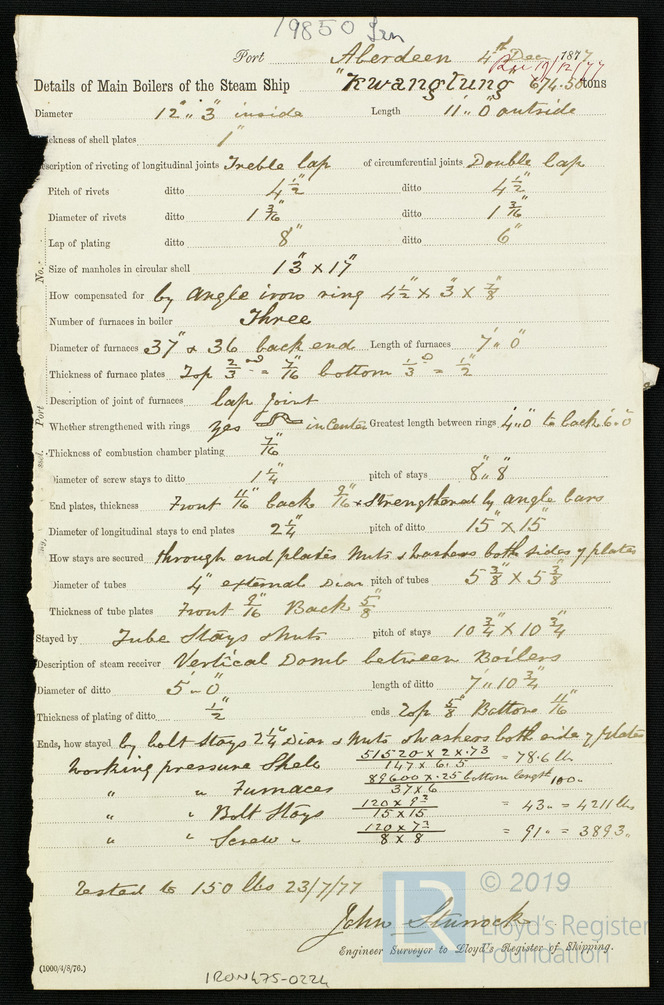 19850 Iron
Port Aberdeen 4th Dec 1877
Rec 19/12/77
Details of Main Boilers of the Steam Ship "Kwangtung" 674.50 tons
Diameter 12" 3" inside Length 11" 0 outside
ickness of shell plates 1"
escription of riveting of longitudinal joints Treble lap of circumferential joints Double lap
Pitch of rivets ditto 4 1/2" ditto 4 1/2"
Diameter of rivets ditto 1 3/16" ditto 1 3/16"
Lap of plating ditto 8" ditto 6"
No.
Size of manholes in circular shell 13" x 17"
How compensated for by angle iron ring 4 1/2" x 3" x 7/8"
Number of furnaces in boiler Three
Diameter of furnaces 37" & 36 back end Length of furnaces 7' " 0"
Thickness of furnace plates Top 2/3 rds = 7/16" bottom 1/3 d = 1/2"
Description of joint of furnaces lap Joint
Port
Whether strengthened with rings yes in Center Greatest length between rings 4' " 0 to back 6 " 0
Thickness of combustion chamber plating 7/16"
Diameter of screw stays to ditto 1 1/4" pitch of stays 8" " 8"
End plates, thickness Front 11/16" back 9/16" & strengthened by angle bars
Diameter of longitudinal stays to end plates 2 1/4" pitch of ditto 15" x 15"
How stays are secured through end plates Nuts & washers both sides of plates
Diameter of tubes 4" external Diar pitch of tubes 5 3/8" x 5 3/8"
Thickness of tube plates Front 9/16" Back 5/8"
Stayed by Tube Stays & Nuts pitch of stays 10 3/4" x 10 3/4"
Description of steam receiver Vertical Domb between Boilers
Diameter of ditto 5' - 0" length of ditto 7' " 10 3/4"
Thickness of plating of ditto 1/2" ends Top 5/8" Bottom 11/16"
Ends, how stayed by bolt stays 2 1/4" Diar & Nuts & washers both side of plates
Working pressure Shell 51520 x 2 x .73 / 147 x 6.5 = 78.6 lbs
" " Furnaces 89600 x .25 / 37 x 6 bottom length 100 "
" " Bolt Stays 120 x 93 / 15 x 15 = 43 " = 4211 lbs
" " Screw " 120 x 73 / 8 x 8 = 91 " = 3893 "
Tested to 150 lbs 23/7/77
John Sturrock
Engineer Surveyor to Lloyd's Register of Shipping.
(1000/4/8/76.)
IRON475-0224
LR
© 2019
Lloyd's Register
Foundation